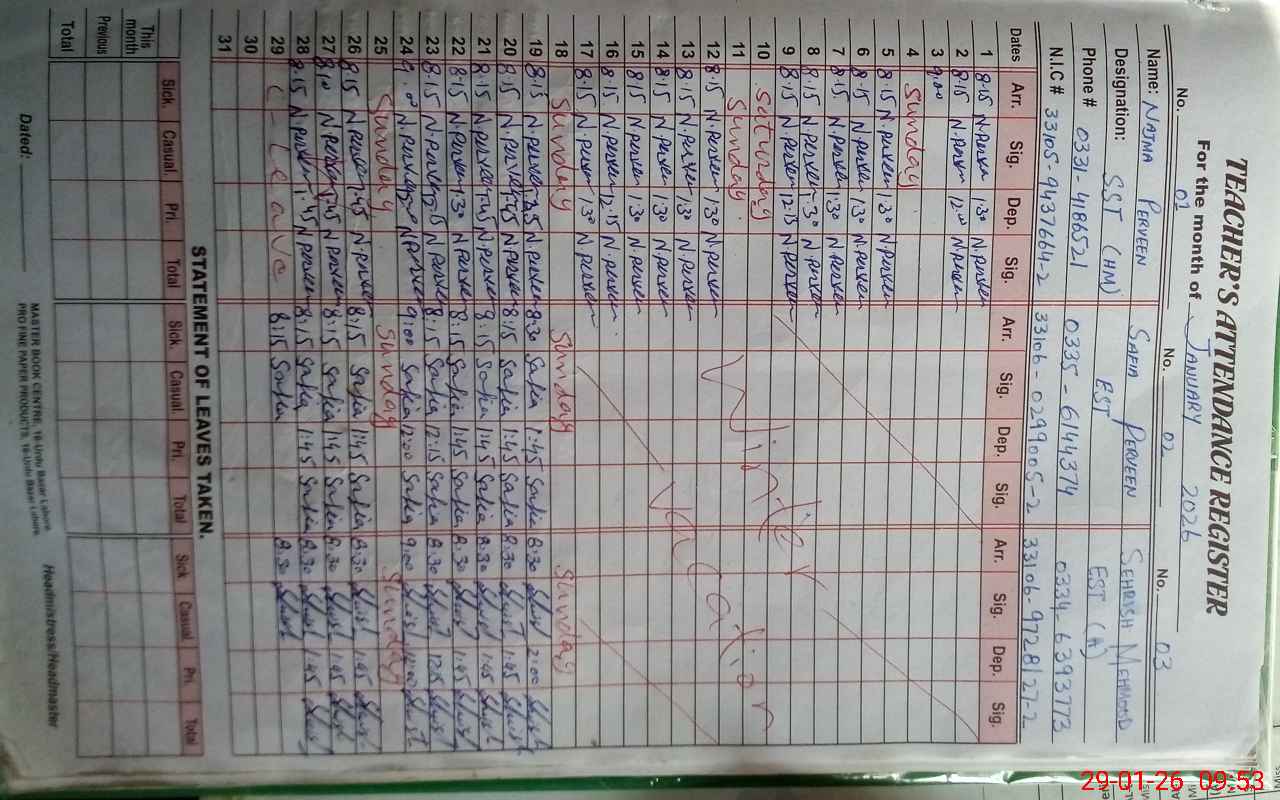 TEACHER'S ATTENDANCE REGISTER
For the month of JANUARY 2026
No. 01 No. 02 No. 03
Name: NAJMA PERVEEN SAFIA PERVEEN SEHRISH MEHMOOD
Designation: SST (HM) EST EST (A)
Phone # 0331-4186521 0335-6144374 0334-6393773
N.I.C # 33105-9437664-2 33106-0299005-2 33106-9728127-2
Dates Arr. Sig. Dep. Sig. Arr. Sig. Dep. Sig. Arr. Sig. Dep. Sig.
1 8.15 N.perveen 1:30 N.perveen
2 8.15 N.perveen 12:00 N.perveen
3 9:00
4 Sunday
5 8.15 N.perveen 1:30 N.perveen
6 8.15 N.perveen 1:30 N.perveen
7 8.15 N.perveen 1:30 N.perveen
8 8.15 N.perveen 1:30 N.perveen
9 8.15 N.perveen 12:15 N.perveen
10 Saturday
11 Sunday
Winter Vacation
12 8.15 N.perveen 1:30 N.perveen
13 8.15 N.perveen 1:30 N.perveen
14 8.15 N.perveen 1:30 N.perveen
15 8.15 N.perveen 1:30 N.perveen
16 8.15 N.perveen 12:15 N.perveen
17 8.15 N.perveen 1:30 N.perveen
18 Sunday Sunday Sunday
19 8.15 N.perveen N.perveen 8:30 Safia 1:45 Safia 8:30 2:00
20 8.15 N.perveen 1:45 N.perveen 8:15 Safia 1:45 Safia 8:30 1:45
21 8.15 N.perveen 1:45 N.perveen 8:15 Safia 1:45 Safia 8:30 1:45
22 8.15 N.perveen 1:30 N.perveen 8:15 Safia 1:45 Safia 8:30 1:45
23 8.15 N.perveen 12:15 N.perveen 8:15 Safia 12:15 Safia 8:30 12:15
24 9:00 N.perveen N.perveen 9:00 Safia 12:00 Safia 9:00 12:00
25 Sunday Sunday Sunday
26 8.15 N.perveen 1:45 N.perveen 8:15 Safia 1:45 Safia 8:30 1:45
27 8:10 N.perveen 1:45 N.perveen 8:15 Safia 1:45 Safia 8:30 1:45
28 8.15 N.perveen 1:45 N.perveen 8:15 Safia 1:45 Safia 8:30 1:45
29 C-Leave 8:15 Safia 8:30
30
31
STATEMENT OF LEAVES TAKEN.
Sick. Casual. Pri. Total Sick. Casual. Pri. Total Sick Casual. Pri. Total
This month
Previous
Total
Dated: Headmistress/Headmaster
MASTER BOOK CENTRE, 16-Urdu Bazar Lahore.
PRO FINE PAPER PRODUCTS, 16-Urdu Bazar Lahore.
29-01-26 09:53